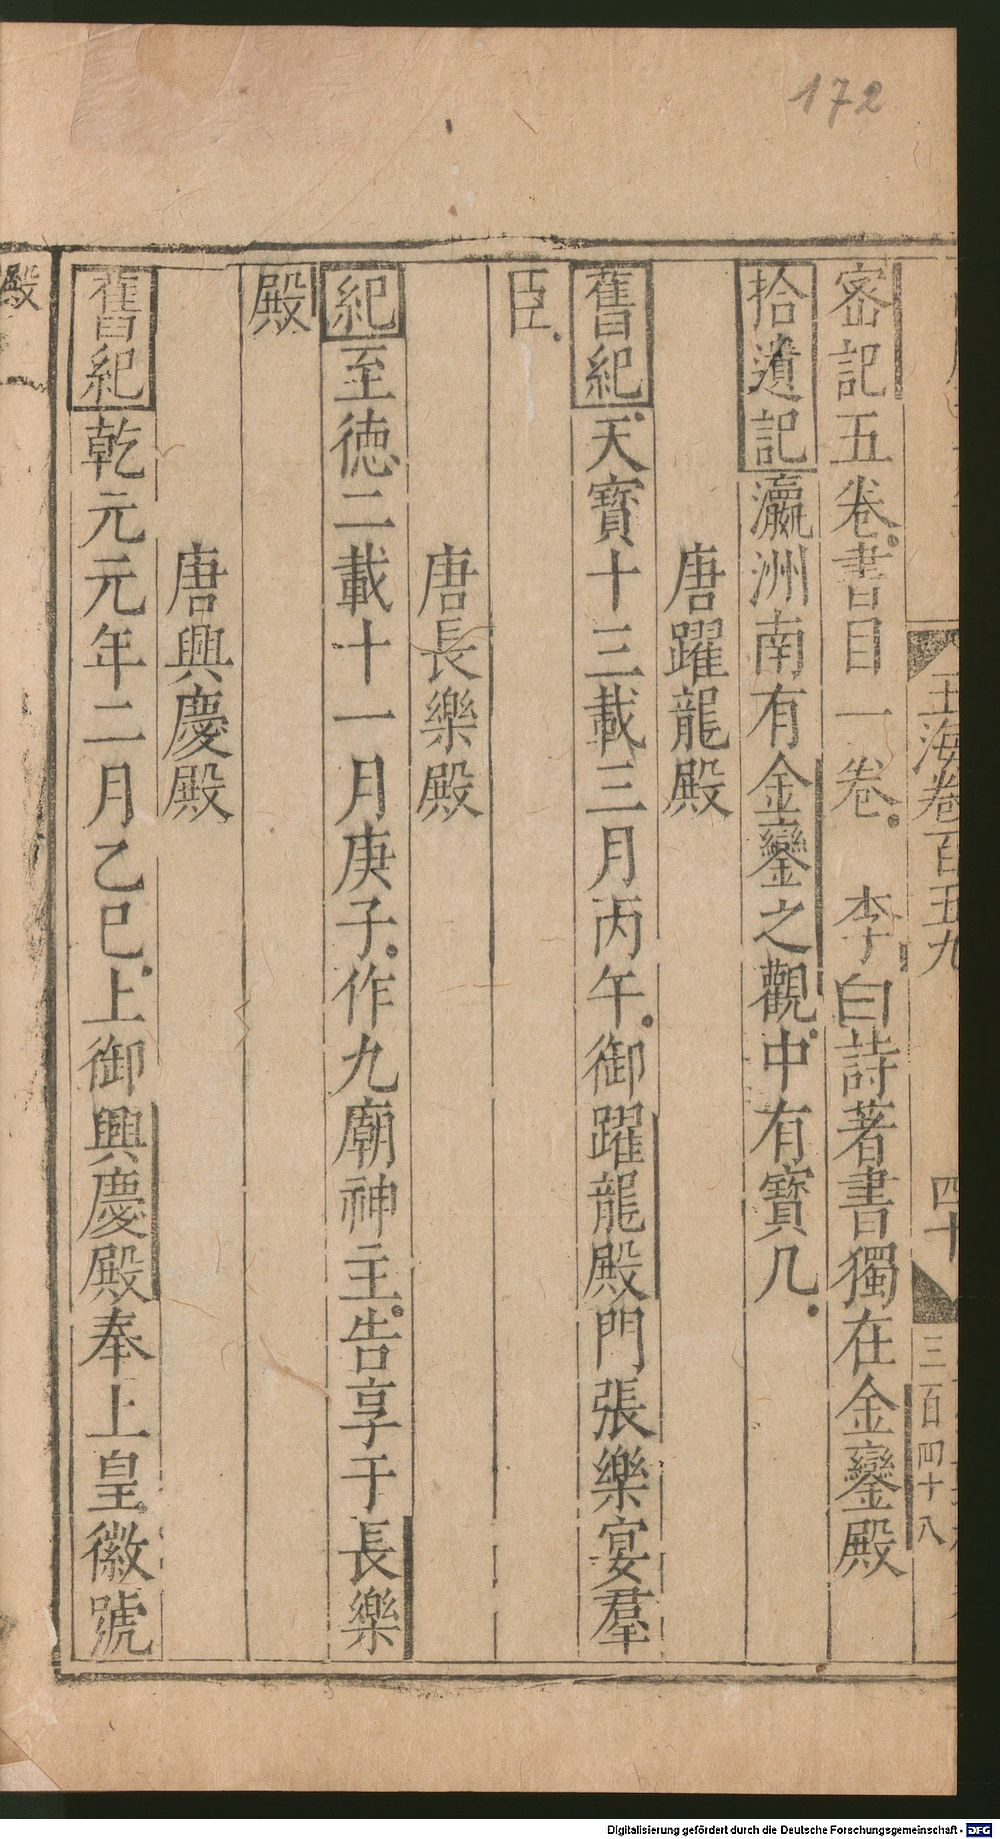 172
玉海卷百五九
四十
三百四十八
宻記五卷書目一卷 李白詩著書獨在金鑾殿
拾遺記瀛洲南有金鑾之觀中有寳几
唐躍龍殿
舊紀天寳十三載三月丙午御躍龍殿門張樂宴羣
臣
唐長樂殿
紀至徳二載十一月庚子作九廟神主告享于長樂
殿
唐興慶殿
舊紀乾元元年二月乙巳上御興慶殿奉上皇徽號
殿
Digitalisierung gefördert durch die Deutsche Forschungsgemeinschaft - DFG